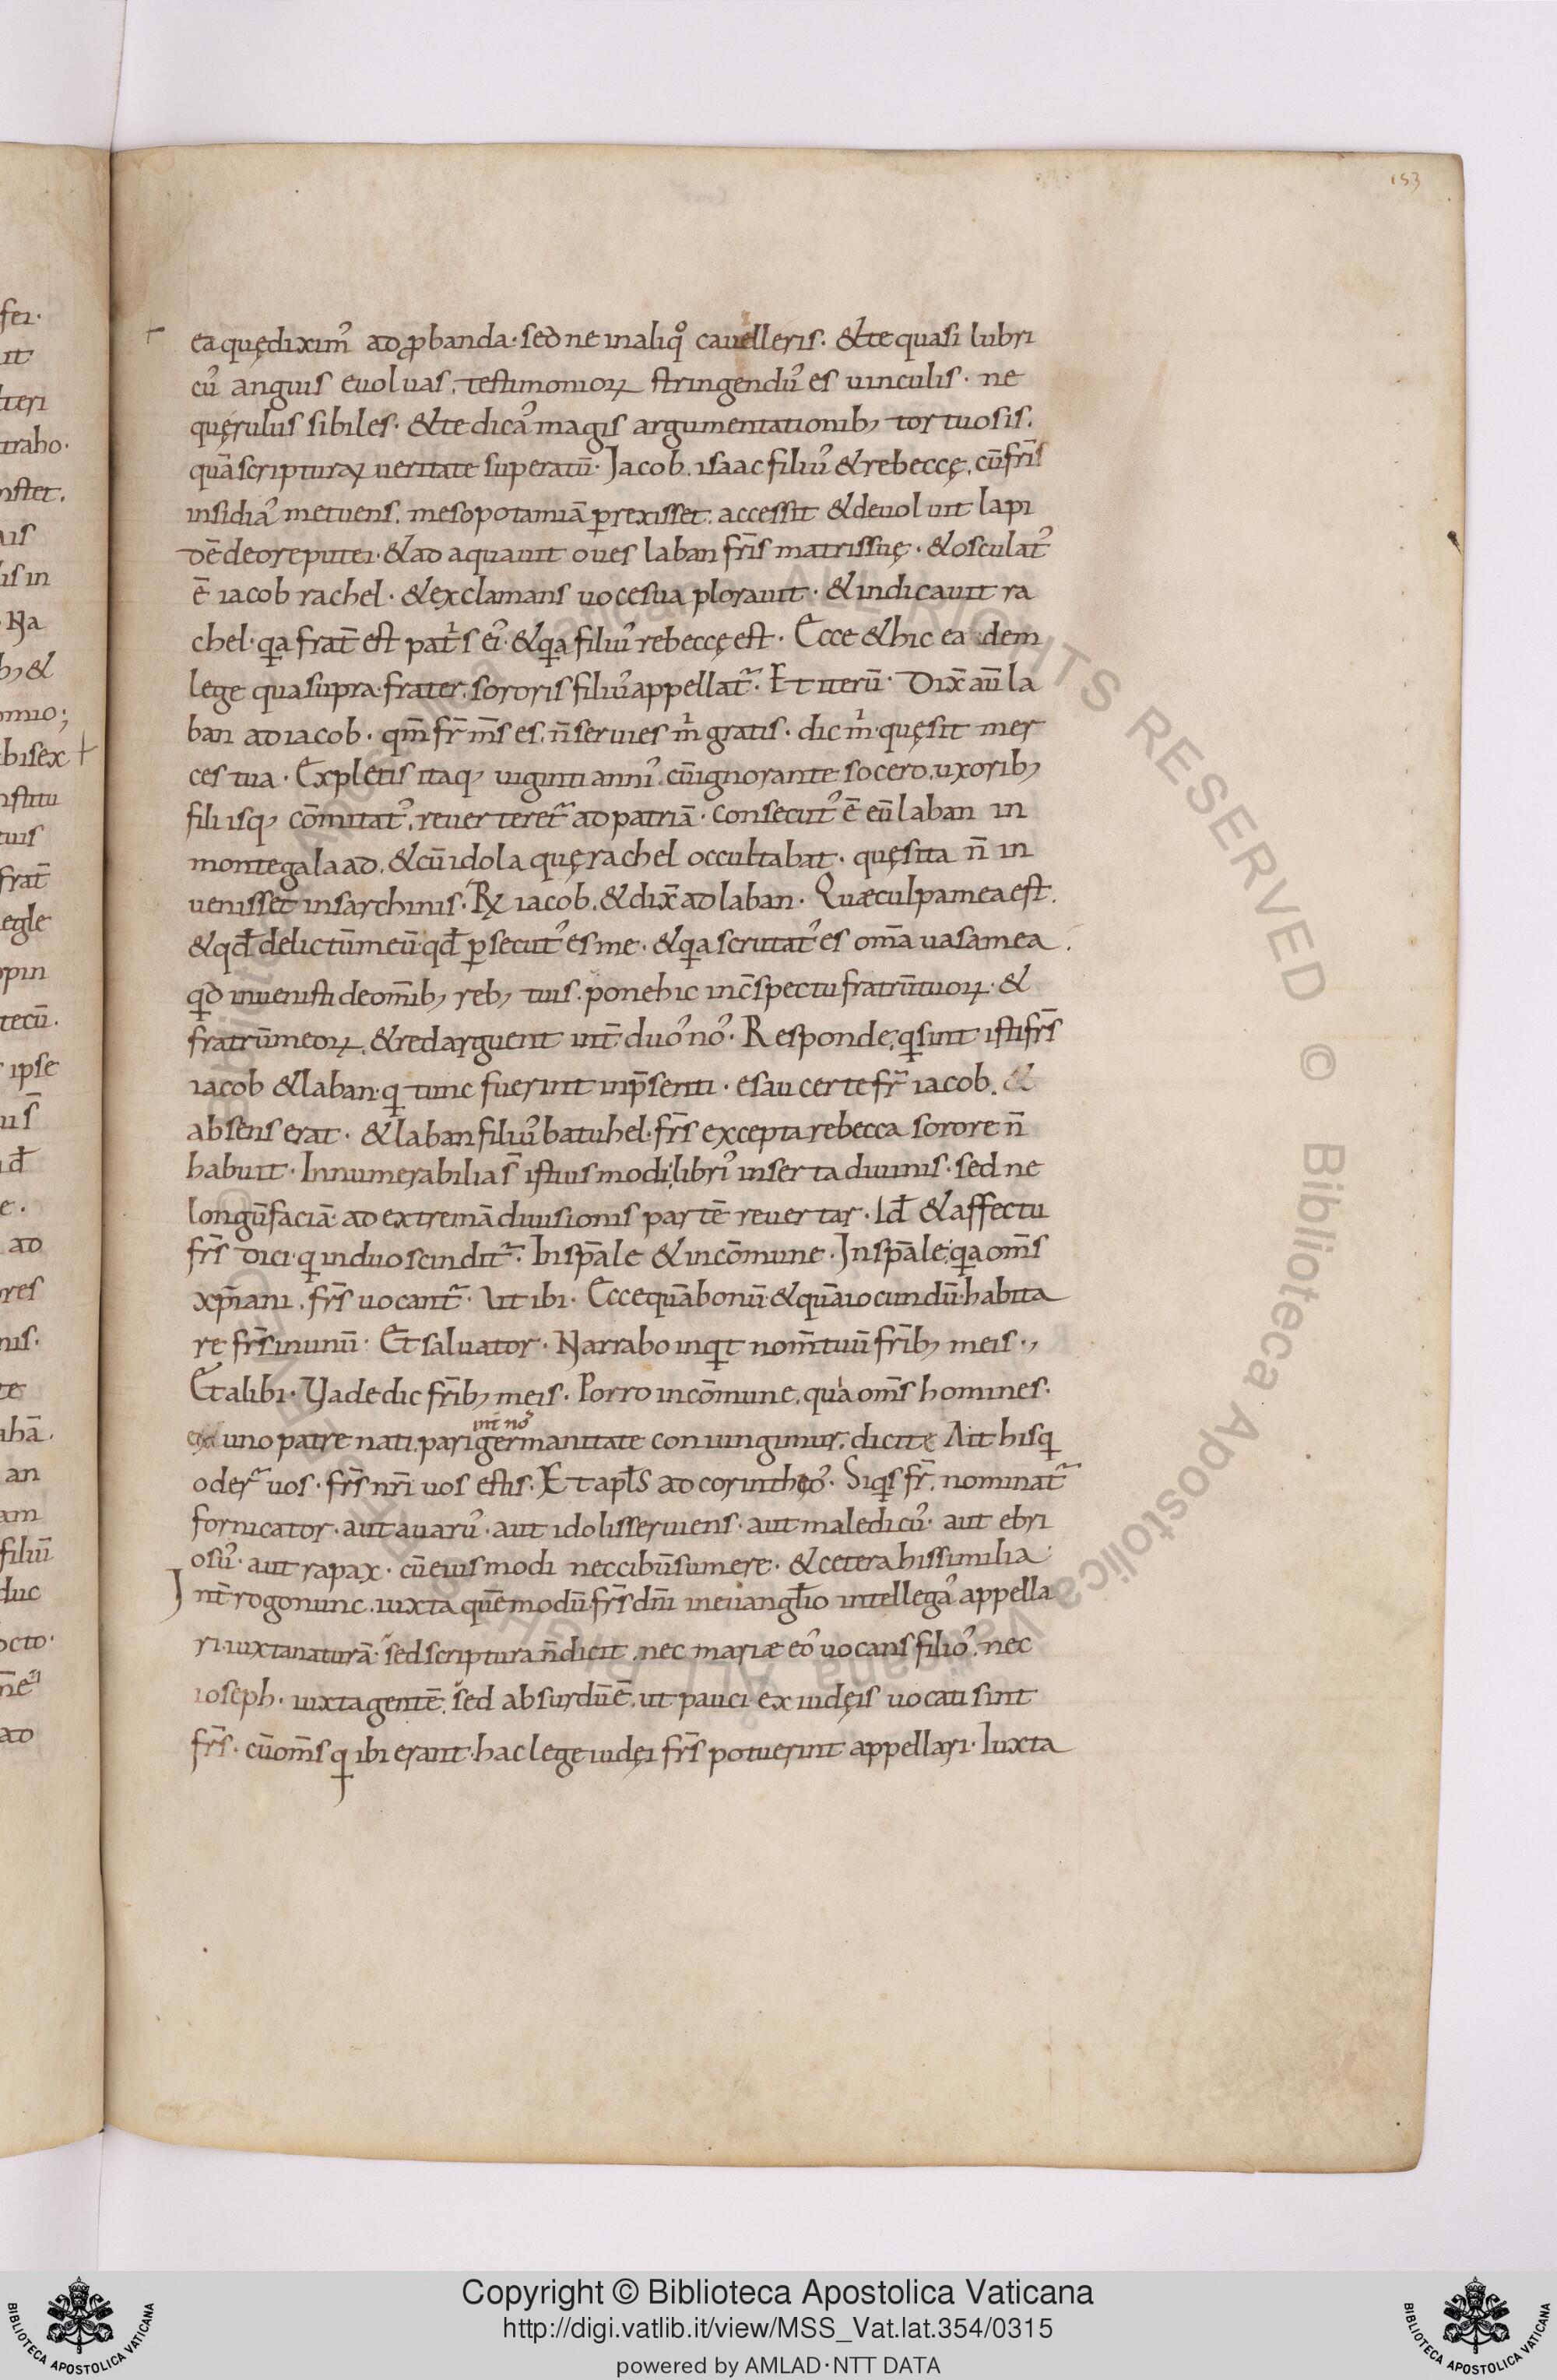 153
ea quę dixim᾽ ad ꝓbanda · sed ne in aliqͦ cauelleris · & te quasi lubri
cu᾽ anguis euoluas, testimonioꝝ stringendu᾽ es uinculis · ne
quęrulus sibiles · & te dica᾽ magis argumentationib; tortuosis.
quā scripturaꝝ ueritate superatū · Jacob. isaac filiu᾽ & rebeccę, cū fr̄is
insidia᾽ metuens. mesopotamiā ꝑrexisset. accessit & deuoluit lapi
dē de ore putei · & adaquauit oues laban fr̄is matris suę · & osculat᾽
ē iacob rachel · & exclamans uoce sua plorauit · & indicauit ra
chel · qa frat̄ est pat's ei᾽ · & qa filiu᾽ rebeccę est · Ecce & hic eadem
lege qua supra · frater. sororis filiu᾽ appellat᷑ · Et iterū · Dix̄ aū la
ban ad iacob · qm̄ fr̄ m̄s es. n̄ seruies m' gratis · dic m' · quę sit mer
ces tua · Expletis itaq; uiginti anni᾽ cū ignorante socero. uxorib;
filiisq; cōmitat᾽. reuerteret᷑ ad patriā · consecut᾽ ē eū laban in
monte galaad. & cū idola quę rachel occultabat · quęsita n̄ in
uenisset in sarchinis · R̷ iacob. & dix̄ ad laban · Quæ culpa mea est.
& qđ delictū meū qđ ꝑsecut᾽ es me · & qa scrutat᾽ es om̄a uasa mea.
qd inuenisti de om̄ib; reb; tuis. pone hic in c̄spectu fratrū tuoꝝ · &
fratrū meoꝝ. & redarguent int̄ duo᾽ no᾽ · Responde, q sint isti fr̄s
iacob & laban · q tunc fuerint in p̄senti · esau certe fr̄ iacob. &
absens erat · & laban filiu᾽ batuhel · fr̄s excepta rebecca sorore n̄
habuit · Innumerabilia s̄ istius modi. libri᾽ inserta diuinis · sed ne
longū faciā · ad extremā diuisionis partē reuertar · Id̄ & affectu
fr̄s dici · q in duo scindit᷑ · In sp̄ale & in cōmune · In sp̄ale · qa om̄s
xp̄iani. fr̄s uocant᷑ · Ut ibi · Ecce quā bonū · & quā iocundū · habita
re fr̄s in unū · Et saluator · Narrabo inqt nom̄ tuū fr̄ib; meis ·,
Et alibi · Uade dic fr̄ib; meis · Porro in cōmune, quia om̄s homines ·
int̄ no᾽
ex uno patre nati. pari germanitate coniungimur. dicite Ait his q
oder᷑ uos · fr̄s nr̄i uos estis · Et apl̄s ad corintheo᾽ · Siqs fr̄. nominat᷑
fornicator · aut auaru᾽ · aut idolis seruiens · aut maledicu᾽ · aut ebri
osu᾽ · aut rapax · cū eius modi nec cibū sumere · & cetera his similia ·
Int̄rogo nunc. iuxta quē modū fr̄s dn̄i in euangl̄io intellega᾽ appella
ri · iuxta naturā · sed scriptura n̄ dicit. nec mariæ eo᾽ uocans filio᾽. nec
ioseph · iuxta gentē. sed absurdū ē. ut pauci ex iudęis uocati sint
fr̄s · cū om̄s q ibi erant · hac lege iudęi fr̄s potuerint appellari · Iuxta
Copyright © Biblioteca Apostolica Vaticana
http://digi.vatlib.it/view/MSS_Vat.lat.354/0315
powered by AMLAD·NTT DATA